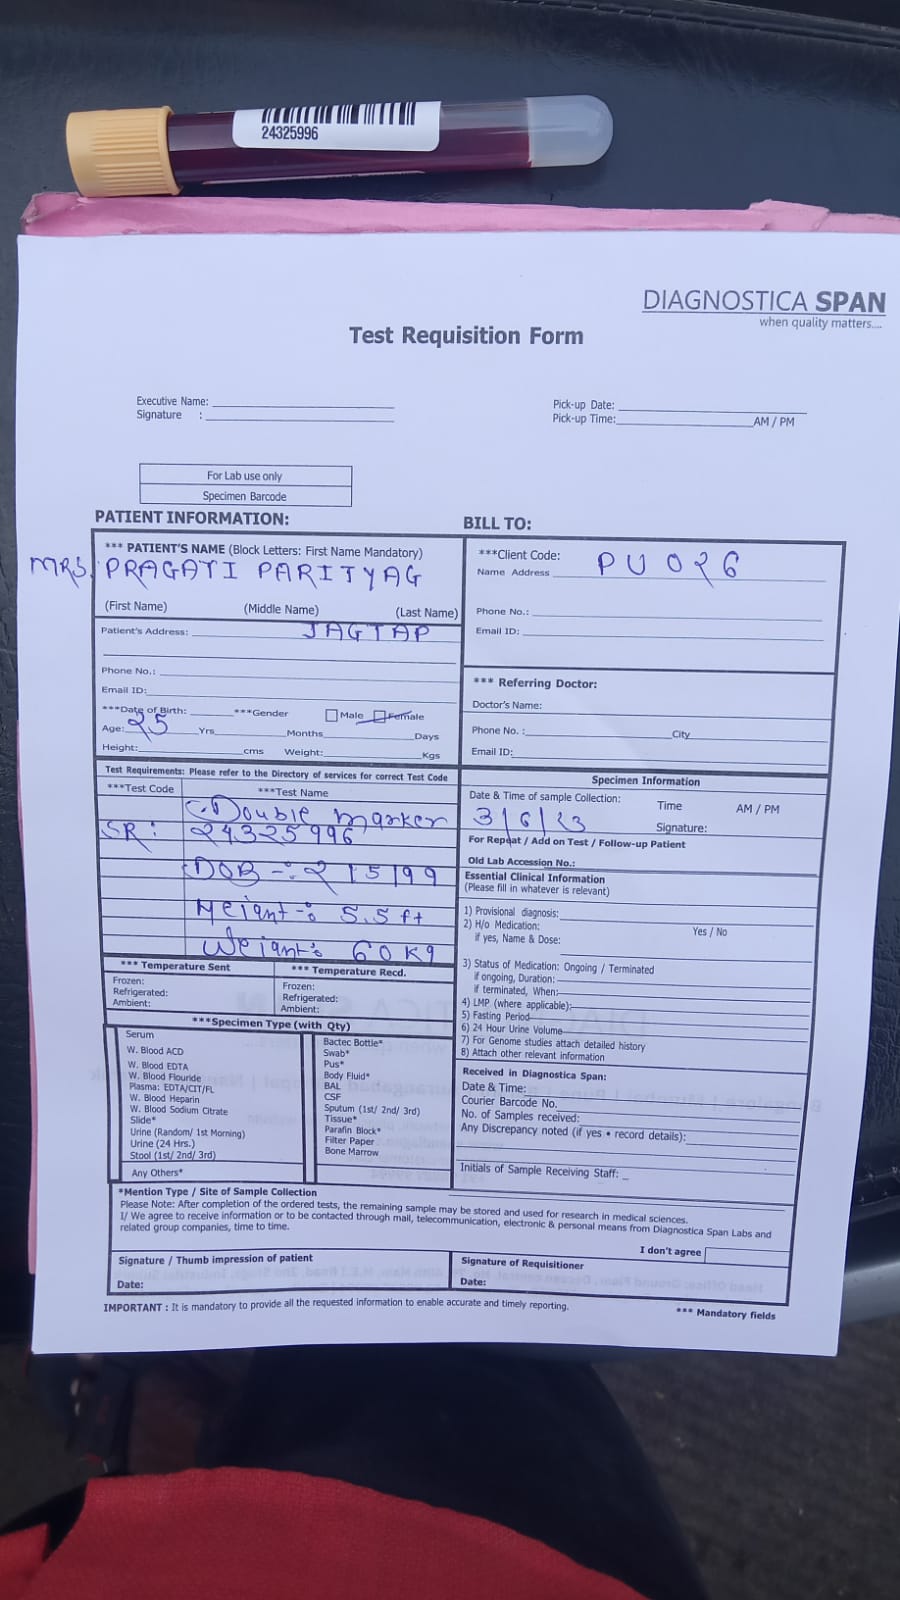 24325996
DIAGNOSTICA SPAN
when quality matters....
Test Requisition Form
Executive Name:
Signature :
Pick-up Date:
Pick-up Time: AM / PM
For Lab use only
Specimen Barcode
PATIENT INFORMATION:
*** PATIENT'S NAME (Block Letters: First Name Mandatory)
MRS. PRAGATI PARITYAG
(First Name) (Middle Name) (Last Name)
Patient's Address: JAGTAP
Phone No.:
Email ID:
***Date of Birth: ***Gender Male Female
Age: 25 Yrs Months Days
Height: cms Weight: Kgs
BILL TO:
***Client Code: PU026
Name Address
Phone No.:
Email ID:
*** Referring Doctor:
Doctor's Name:
Phone No. : City
Email ID:
Test Requirements: Please refer to the Directory of services for correct Test Code
***Test Code ***Test Name
Double marker
SR: 24325996
DOB -: 2/5/99
Heignt -: 5.5 ft
Weignt: 60 Kg
Specimen Information
Date & Time of sample Collection: Time AM / PM
3/6/23 Signature:
For Repeat / Add on Test / Follow-up Patient
Old Lab Accession No.:
Essential Clinical Information
(Please fill in whatever is relevant)
1) Provisional diagnosis:
2) H/o Medication: Yes / No
if yes, Name & Dose:
3) Status of Medication: Ongoing / Terminated
if ongoing, Duration:
if terminated, When:
4) LMP (where applicable):
5) Fasting Period
6) 24 Hour Urine Volume
7) For Genome studies attach detailed history
8) Attach other relevant information
*** Temperature Sent *** Temperature Recd.
Frozen: Frozen:
Refrigerated: Refrigerated:
Ambient: Ambient:
***Specimen Type (with Qty)
Serum
W. Blood ACD
W. Blood EDTA
W. Blood Flouride
Plasma: EDTA/CIT/FL
W. Blood Heparin
W. Blood Sodium Citrate
Slide*
Urine (Random/ 1st Morning)
Urine (24 Hrs.)
Stool (1st/ 2nd/ 3rd)
Any Others*
Bactec Bottle*
Swab*
Pus*
Body Fluid*
BAL
CSF
Sputum (1st/ 2nd/ 3rd)
Tissue*
Parafin Block*
Filter Paper
Bone Marrow
Received in Diagnostica Span:
Date & Time:
Courier Barcode No.
No. of Samples received:
Any Discrepancy noted (if yes • record details):
Initials of Sample Receiving Staff:
*Mention Type / Site of Sample Collection
Please Note: After completion of the ordered tests, the remaining sample may be stored and used for research in medical sciences.
I/ We agree to receive information or to be contacted through mail, telecommunication, electronic & personal means from Diagnostica Span Labs and
related group companies, time to time.
I don't agree
Signature / Thumb impression of patient
Date:
Signature of Requisitioner
Date:
IMPORTANT : It is mandatory to provide all the requested information to enable accurate and timely reporting.
*** Mandatory fields